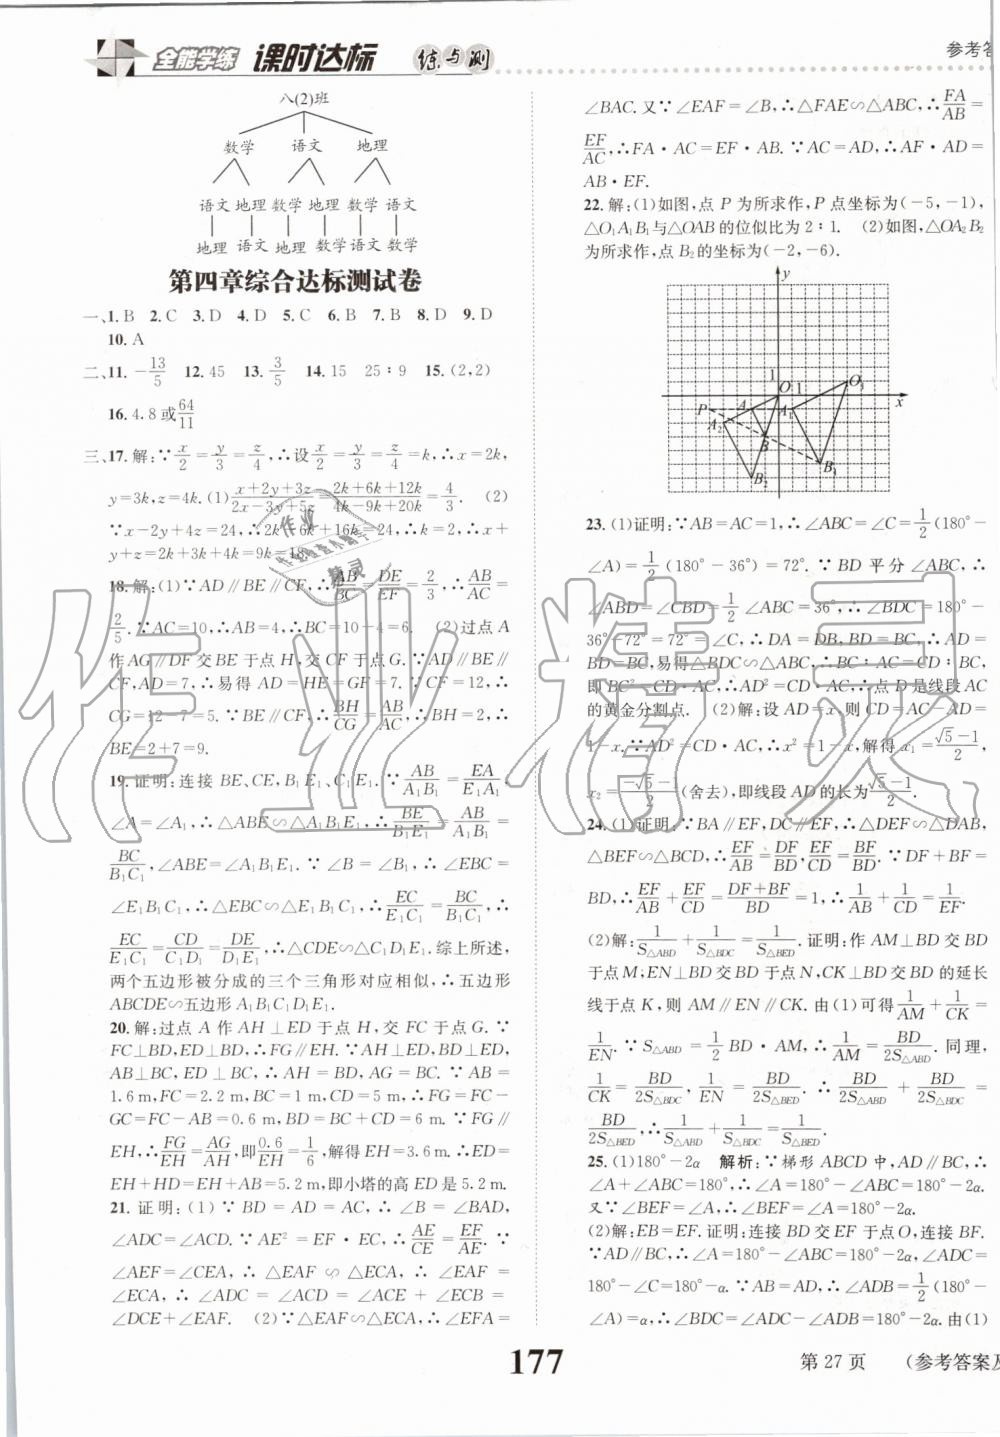 全能学练 课时达标 练与测
参考答
八(2)班
数学 语文 地理
语文 地理 数学 地理 数学 语文
地理 语文 地理 数学 语文 数学
第四章综合达标测试卷
一、1. B 2. C 3. D 4. D 5. C 6. B 7. B 8. D 9. D
10. A
二、11. -13/5 12. 45 13. 3/5 14. 15 25∶9 15. (2,2)
16. 4.8或64/11
三、17. 解:∵x/2=y/3=z/4,∴设x/2=y/3=z/4=k,∴x=2k,
y=3k,z=4k. (1)(x+2y+3z)/(2x-3y+5z)=(2k+6k+12k)/(4k-9k+20k)=4/3. (2)
∵x-2y+4z=24,∴2k-6k+16k=24,∴k=2,∴x+
y+z=2k+3k+4k=9k=18.
18. 解:(1)∵AD∥BE∥CF,∴AB/BC=DE/EF=2/3,∴AB/AC=
2/5. ∵AC=10,∴AB=4,∴BC=10-4=6. (2)过点A
作AG∥DF交BE于点H,交CF于点G. ∵AD∥BE∥
CF,AD=7,∴易得AD=HE=GF=7. ∵CF=12,∴
CG=12-7=5. ∵BE∥CF,∴BH/CG=AB/AC,∴BH=2,∴
BE=2+7=9.
19. 证明:连接BE,CE,B₁E₁、C₁E₁. ∵AB/A₁B₁=EA/E₁A₁,
∠A=∠A₁,∴△ABE∽△A₁B₁E₁,∴BE/B₁E₁=AB/A₁B₁=
BC/B₁C₁,∠ABE=∠A₁B₁E₁. ∵∠B=∠B₁,∴∠EBC=
∠E₁B₁C₁,∴△EBC∽△E₁B₁C₁,∴EC/E₁C₁=BC/B₁C₁,∴
EC/E₁C₁=CD/C₁D₁=DE/D₁E₁,∴△CDE∽△C₁D₁E₁. 综上所述,
两个五边形被分成的三个三角形对应相似,∴五边形
ABCDE∽五边形A₁B₁C₁D₁E₁.
20. 解:过点A作AH⊥ED于点H,交FC于点G. ∵
FC⊥BD,ED⊥BD,∴FG∥EH. ∵AH⊥ED,BD⊥ED,
AB⊥BC,ED⊥BC,∴AH=BD,AG=BC. ∵AB=
1.6 m,FC=2.2 m,BC=1 m,CD=5 m,∴FG=FC-
GC=FC-AB=0.6 m,BD=BC+CD=6 m. ∵FG∥
EH,∴FG/EH=AG/AH,即0.6/EH=1/6,解得EH=3.6 m.∴ED=
EH+HD=EH+AB=5.2 m,即小塔的高ED是5.2 m.
21. 证明:(1)∵BD=AD=AC,∴∠B=∠BAD,
∠ADC=∠ACD. ∵AE²=EF·EC,∴AE/CE=EF/AE. ∵
∠AEF=∠CEA,∴△EAF∽△ECA,∴∠EAF=
∠ECA,∴∠ADC=∠ACD=∠ACE+∠ECB=
∠DCE+∠EAF. (2)∵△EAF∽△ECA,∴∠EFA=
∠BAC. 又∵∠EAF=∠B,∴△FAE∽△ABC,∴FA/AB=
EF/AC,∴FA·AC=EF·AB. ∵AC=AD,∴AF·AD=
AB·EF.
22. 解:(1)如图,点P为所求作,P点坐标为(-5,-1),
△O₁A₁B₁与△OAB的位似比为2∶1. (2)如图,△OA₂B₂
为所求作,点B₂的坐标为(-2,-6).
y
1 O₁
O 1 x
P A A₁
A₂
B
B₁
B₂
23. (1)证明:∵AB=AC=1,∴∠ABC=∠C=1/2(180°-
∠A)=1/2(180°-36°)=72°. ∵BD平分∠ABC,∴
∠ABD=∠CBD=1/2∠ABC=36°,∴∠BDC=180°-
36°-72°=72°=∠C,∴DA=DB,BD=BC,∴AD=
BD=BC,易得△BDC∽△ABC,∴BC∶AC=CD∶BC,
即BC²=CD·AC,∴AD²=CD·AC,∴点D是线段AC
的黄金分割点. (2)解:设AD=x,则CD=AC-AD=
1-x. ∵AD²=CD·AC,∴x²=1-x,解得x₁=(√5-1)/2,
x₂=(-√5-1)/2(舍去),即线段AD的长为(√5-1)/2.
24. (1)证明:∵BA∥EF,DC∥EF,∴△DEF∽△DAB,
△BEF∽△BCD,∴EF/AB=DF/BD,EF/CD=BF/BD. ∵DF+BF=
BD,∴EF/AB+EF/CD=(DF+BF)/BD=1,∴1/AB+1/CD=1/EF.
(2)解:1/S△ABD+1/S△BDC=1/S△BED. 证明:作AM⊥BD交BD
于点M;EN⊥BD交BD于点N,CK⊥BD交BD的延长
线于点K,则AM∥EN∥CK. 由(1)可得1/AM+1/CK=
1/EN. ∵S△ABD=1/2BD·AM,∴1/AM=BD/2S△ABD. 同理,
1/CK=BD/2S△BDC,1/EN=BD/2S△BED. ∴BD/2S△ABD+BD/2S△BDC=
BD/2S△BED,∴1/S△ABD+1/S△BDC=1/S△BED.
25. (1)180°-2α 解析:∵梯形ABCD中,AD∥BC,∴
∠A+∠ABC=180°,∴∠A=180°-∠ABC=180°-2α.
又∵∠BEF=∠A,∴∠BEF=∠A=180°-2α.
(2)解:EB=EF. 证明:连接BD交EF于点O,连接BF.
∵AD∥BC,∴∠A=180°-∠ABC=180°-2α,∠ADC=
180°-∠C=180°-α. ∵AB=AD,∴∠ADB=1/2(180°-
∠A)=α,∴∠BDC=∠ADC-∠ADB=180°-2α. 由(1)
177
第27页 (参考答案及
作业精灵